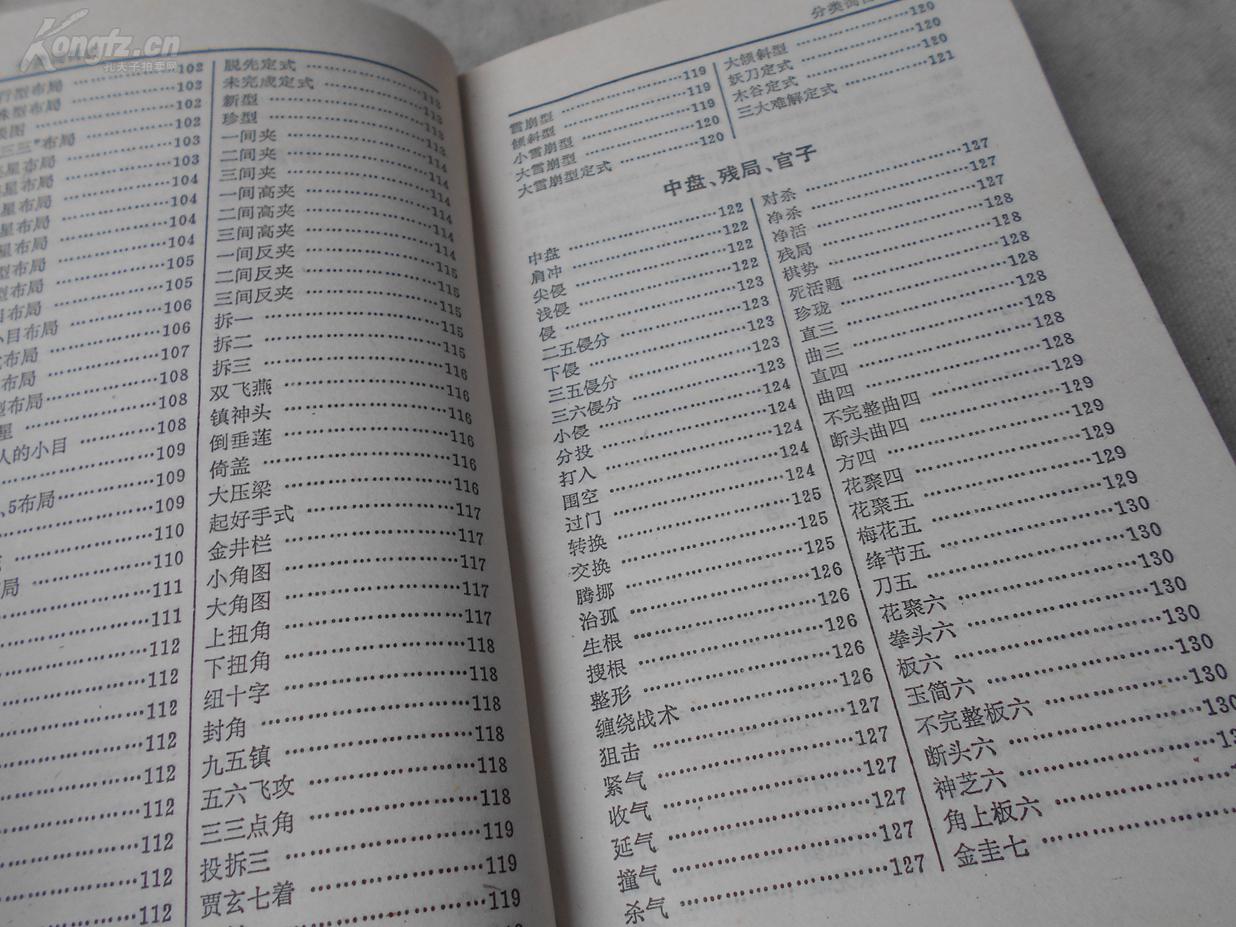 Kongtz.cn
孔夫子拍卖网
行型布局……102
珠型布局……102
图……102
三三"布局……102
星布局……103
星布局……103
星布局……104
星布局……104
星布局……104
型布局……104
型布局……105
目布局……105
小目布局……106
布局……106
布局……107
型布局……108
星……108
人的小目……108
……109
、5布局……109
……109
……110
局……110
……111
……111
……112
……112
……112
……112
……112
……112
……112
……112
……112
脱先定式……113
未完成定式……113
新型……113
珍型……113
一间夹……114
二间夹……114
三间夹……114
一间高夹……114
二间高夹……114
三间高夹……114
一间反夹……115
二间反夹……115
三间反夹……115
拆一……115
拆二……115
拆三……116
双飞燕……116
镇神头……116
倒垂莲……116
倚盖……116
大压梁……116
起好手式……117
金井栏……117
小角图……117
大角图……117
上扭角……117
下扭角……118
纽十字……118
封角……118
九五镇……118
五六飞攻……118
三三点角……118
投拆三……119
贾玄七着……119
……119
分类
雪崩型……119
倾斜型……119
小雪崩型……119
大雪崩型……120
大雪崩型定式……120
大倾斜型……120
妖刀定式……120
木谷定式……120
三大难解定式……121
中盘、残局、官子
中盘……122
肩冲……122
尖侵……122
浅侵……122
侵……123
二五侵分……123
下侵……123
三五侵分……123
三六侵分……124
小侵……124
分投……124
打入……124
围空……124
过门……124
转换……125
交换……125
腾挪……125
治孤……126
生根……126
搜根……126
整形……126
缠绕战术……126
狙击……127
紧气……127
收气……127
延气……127
撞气……127
杀气……127
对杀……127
净杀……127
净活……127
残局……128
棋势……128
死活题……128
珍珑……128
直三……128
曲三……128
直四……128
曲四……128
不完整曲四……129
断头曲四……129
方四……129
花聚四……129
花聚五……129
梅花五……129
绛节五……130
刀五……130
花聚六……130
拳头六……130
板六……130
玉简六……130
不完整板六……130
断头六……130
神芝六……13
角上板六……
金圭七……